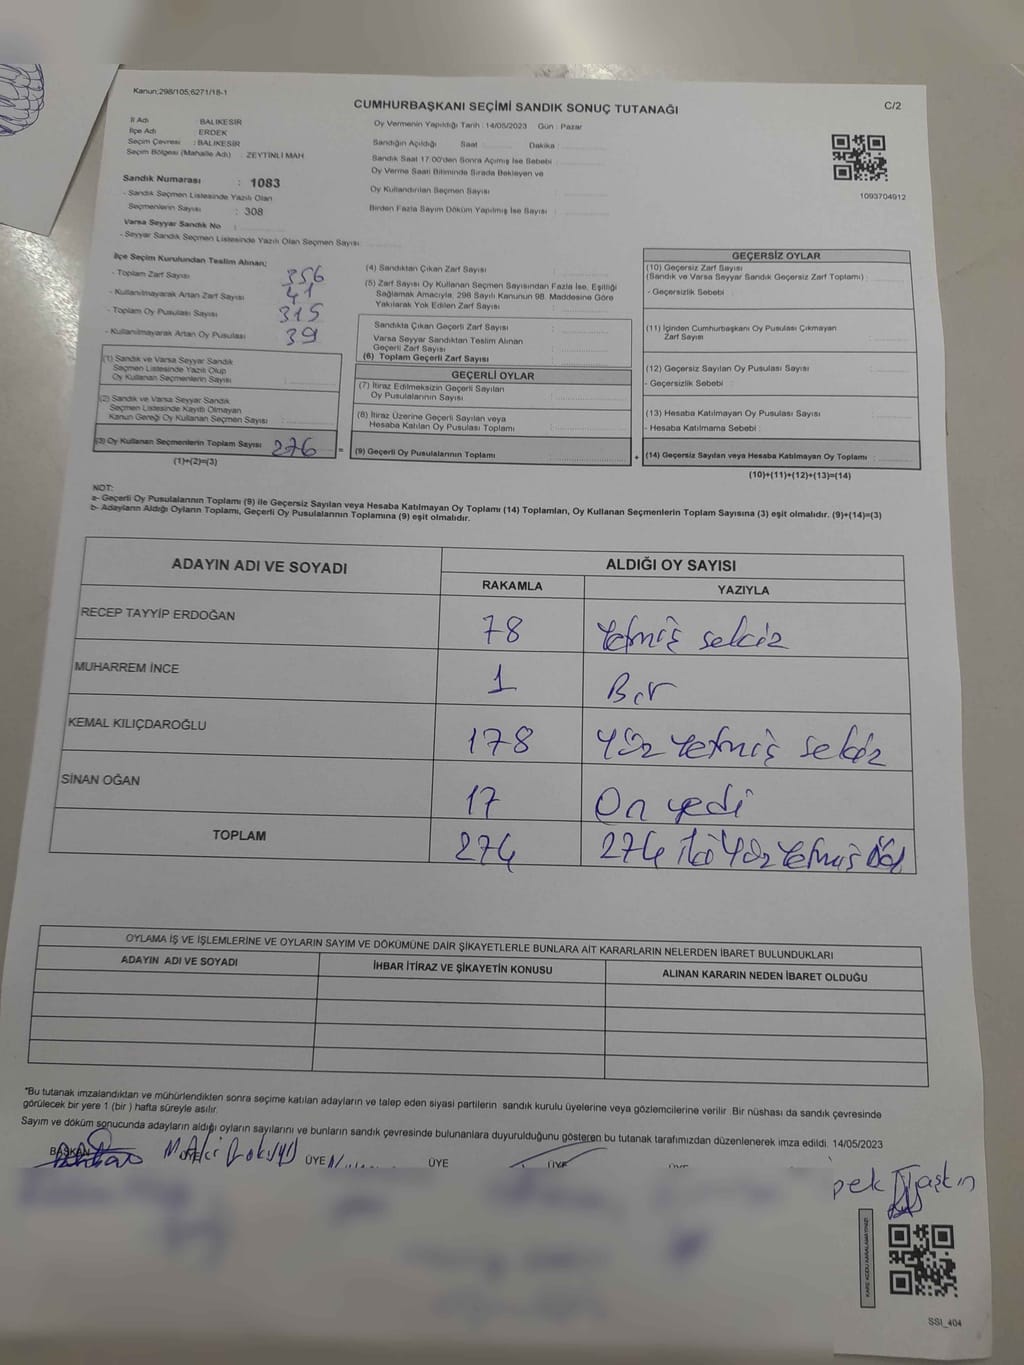 Kanun;298/105;6271/18-1
CUMHURBAŞKANI SEÇİMİ SANDIK SONUÇ TUTANAĞI
C/2
İl Adı : BALIKESİR
İlçe Adı : ERDEK
Seçim Çevresi : BALIKESİR
Seçim Bölgesi (Mahalle Adı) : ZEYTİNLİ MAH
Sandık Numarası : 1083
- Sandık Seçmen Listesinde Yazılı Olan
Seçmenlerin Sayısı : 308
Varsa Seyyar Sandık No :
- Seyyar Sandık Seçmen Listesinde Yazılı Olan Seçmen Sayısı
Oy Vermenin Yapıldığı Tarih : 14/05/2023 Gün : Pazar
Sandığın Açıldığı Saat Dakika :
Sandık Saat 17:00'den Sonra Açılmış İse Sebebi :
Oy Verme Saati Bitiminde Sırada Bekleyen ve
Oy Kullandırılan Seçmen Sayısı :
Birden Fazla Sayım Döküm Yapılmış İse Sayısı :
1093704912
İlçe Seçim Kurulundan Teslim Alınan;
- Toplam Zarf Sayısı : 356
- Kullanılmayarak Artan Zarf Sayısı : 41
- Toplam Oy Pusulası Sayısı : 315
- Kullanılmayarak Artan Oy Pusulası : 39
(1) Sandık ve Varsa Seyyar Sandık
Seçmen Listesinde Yazılı Olup
Oy Kullanan Seçmenlerin Sayısı :
(2) Sandık ve Varsa Seyyar Sandık
Seçmen Listesinde Kayıtlı Olmayan
Kanun Gereği Oy Kullanan Seçmen Sayısı :
(3) Oy Kullanan Seçmenlerin Toplam Sayısı : 276
(1)+(2)=(3)
=
(4) Sandıktan Çıkan Zarf Sayısı :
(5) Zarf Sayısı Oy Kullanan Seçmen Sayısından Fazla İse, Eşitliği
Sağlamak Amacıyla, 298 Sayılı Kanunun 98. Maddesine Göre
Yakılarak Yok Edilen Zarf Sayısı :
Sandıkta Çıkan Geçerli Zarf Sayısı :
Varsa Seyyar Sandıktan Teslim Alınan
Geçerli Zarf Sayısı :
(6) Toplam Geçerli Zarf Sayısı :
GEÇERLİ OYLAR
(7) İtiraz Edilmeksizin Geçerli Sayılan
Oy Pusulalarının Sayısı :
(8) İtiraz Üzerine Geçerli Sayılan veya
Hesaba Katılan Oy Pusulası Toplamı :
(9) Geçerli Oy Pusulalarının Toplamı :
+
GEÇERSİZ OYLAR
(10) Geçersiz Zarf Sayısı
(Sandık ve Varsa Seyyar Sandık Geçersiz Zarf Toplamı) :
- Geçersizlik Sebebi :
(11) İçinden Cumhurbaşkanı Oy Pusulası Çıkmayan
Zarf Sayısı :
(12) Geçersiz Sayılan Oy Pusulası Sayısı :
- Geçersizlik Sebebi :
(13) Hesaba Katılmayan Oy Pusulası Sayısı :
- Hesaba Katılmama Sebebi :
(14) Geçersiz Sayılan veya Hesaba Katılmayan Oy Toplamı :
(10)+(11)+(12)+(13)=(14)
NOT:
a- Geçerli Oy Pusulalarının Toplamı (9) ile Geçersiz Sayılan veya Hesaba Katılmayan Oy Toplamı (14) Toplamları, Oy Kullanan Seçmenlerin Toplam Sayısına (3) eşit olmalıdır. (9)+(14)=(3)
b- Adayların Aldığı Oyların Toplamı, Geçerli Oy Pusulalarının Toplamına (9) eşit olmalıdır.
ADAYIN ADI VE SOYADI
ALDIĞI OY SAYISI
RAKAMLA YAZIYLA
RECEP TAYYİP ERDOĞAN 78 Yetmiş sekiz
MUHARREM İNCE 1 Bir
KEMAL KILIÇDAROĞLU 178 Yüz Yetmiş sekiz
SİNAN OĞAN 17 On yedi
TOPLAM 274 274 iki Yüz Yetmiş Dört
OYLAMA İŞ VE İŞLEMLERİNE VE OYLARIN SAYIM VE DÖKÜMÜNE DAİR ŞİKAYETLERLE BUNLARA AİT KARARLARIN NELERDEN İBARET BULUNDUKLARI
ADAYIN ADI VE SOYADI İHBAR İTİRAZ VE ŞİKAYETİN KONUSU ALINAN KARARIN NEDEN İBARET OLDUĞU
*Bu tutanak imzalandıktan ve mühürlendikten sonra seçime katılan adayların ve talep eden siyasi partilerin sandık kurulu üyelerine veya gözlemcilerine verilir. Bir nüshası da sandık çevresinde
görülecek bir yere 1 (bir ) hafta süreyle asılır.
Sayım ve döküm sonucunda adayların aldığı oyların sayılarını ve bunların sandık çevresinde bulunanlara duyurulduğunu gösteren bu tutanak tarafımızdan düzenlenerek imza edildi. 14/05/2023
BAŞKAN ÜYE ÜYE ÜYE ÜYE
pek Taşkın
SSI_404